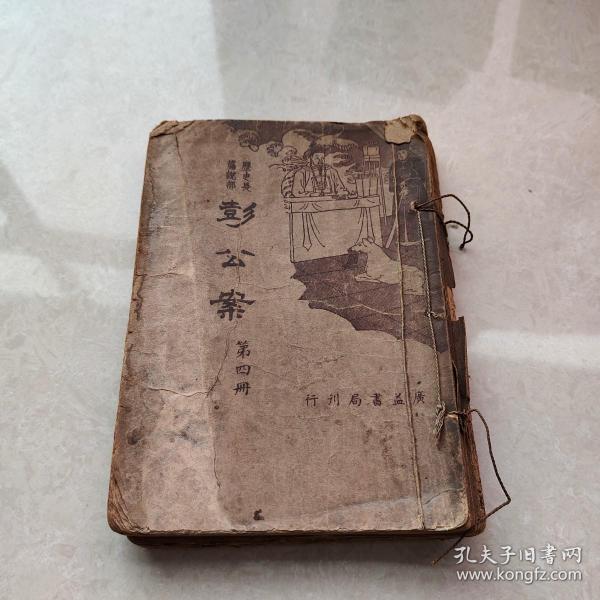 歷史長
篇說部
彭公案
第四冊
廣益書局刊行
孔夫子旧书网
www.kongfz.com